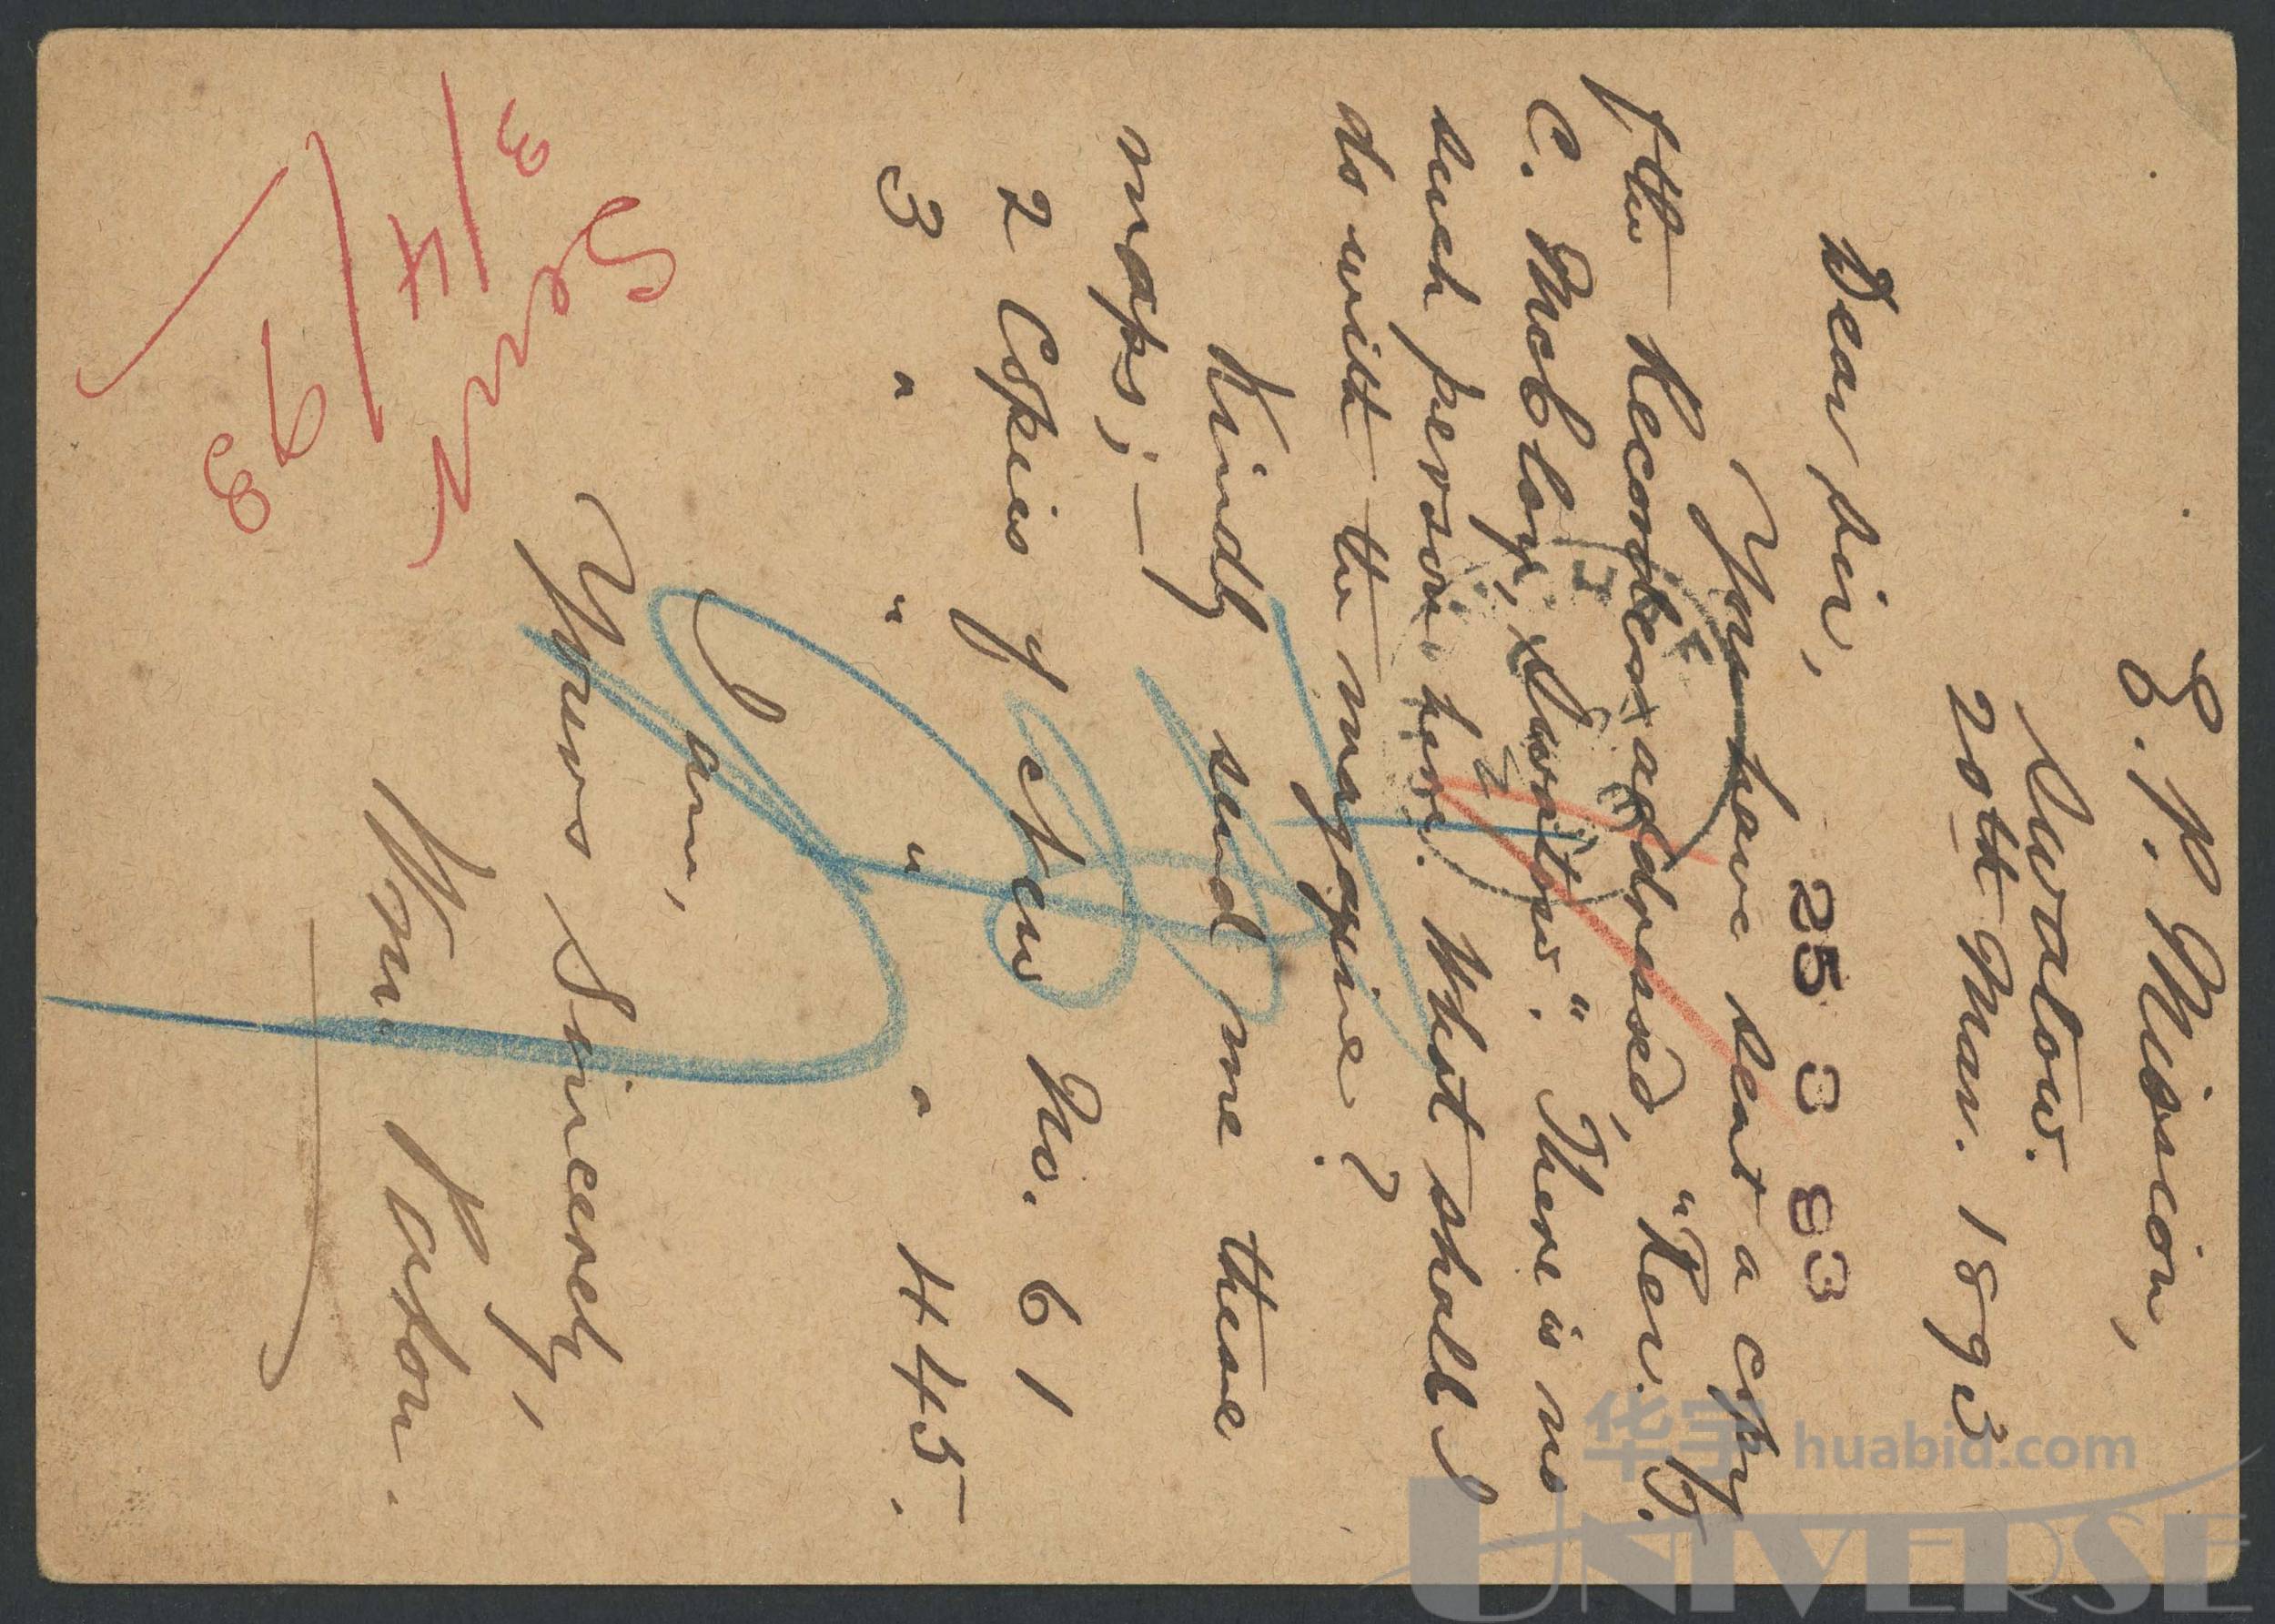 E. P. Mission,
Swatow.
20th Mar. 1893
25 3 93
Dear Sir,
You have sent a copy
of the Recorder addressed, "Rev. B.
C. McClay, Swatow". There is no
such person here. What shall I
do with the magazine?
Kindly send me these
maps; —
2 Copies of item No. 61
3 " " " " 445.
I am,
Yours Sincerely,
Wm. Paton.
Sent
3/4/93
华宇 huabid.com
UNIVERSE